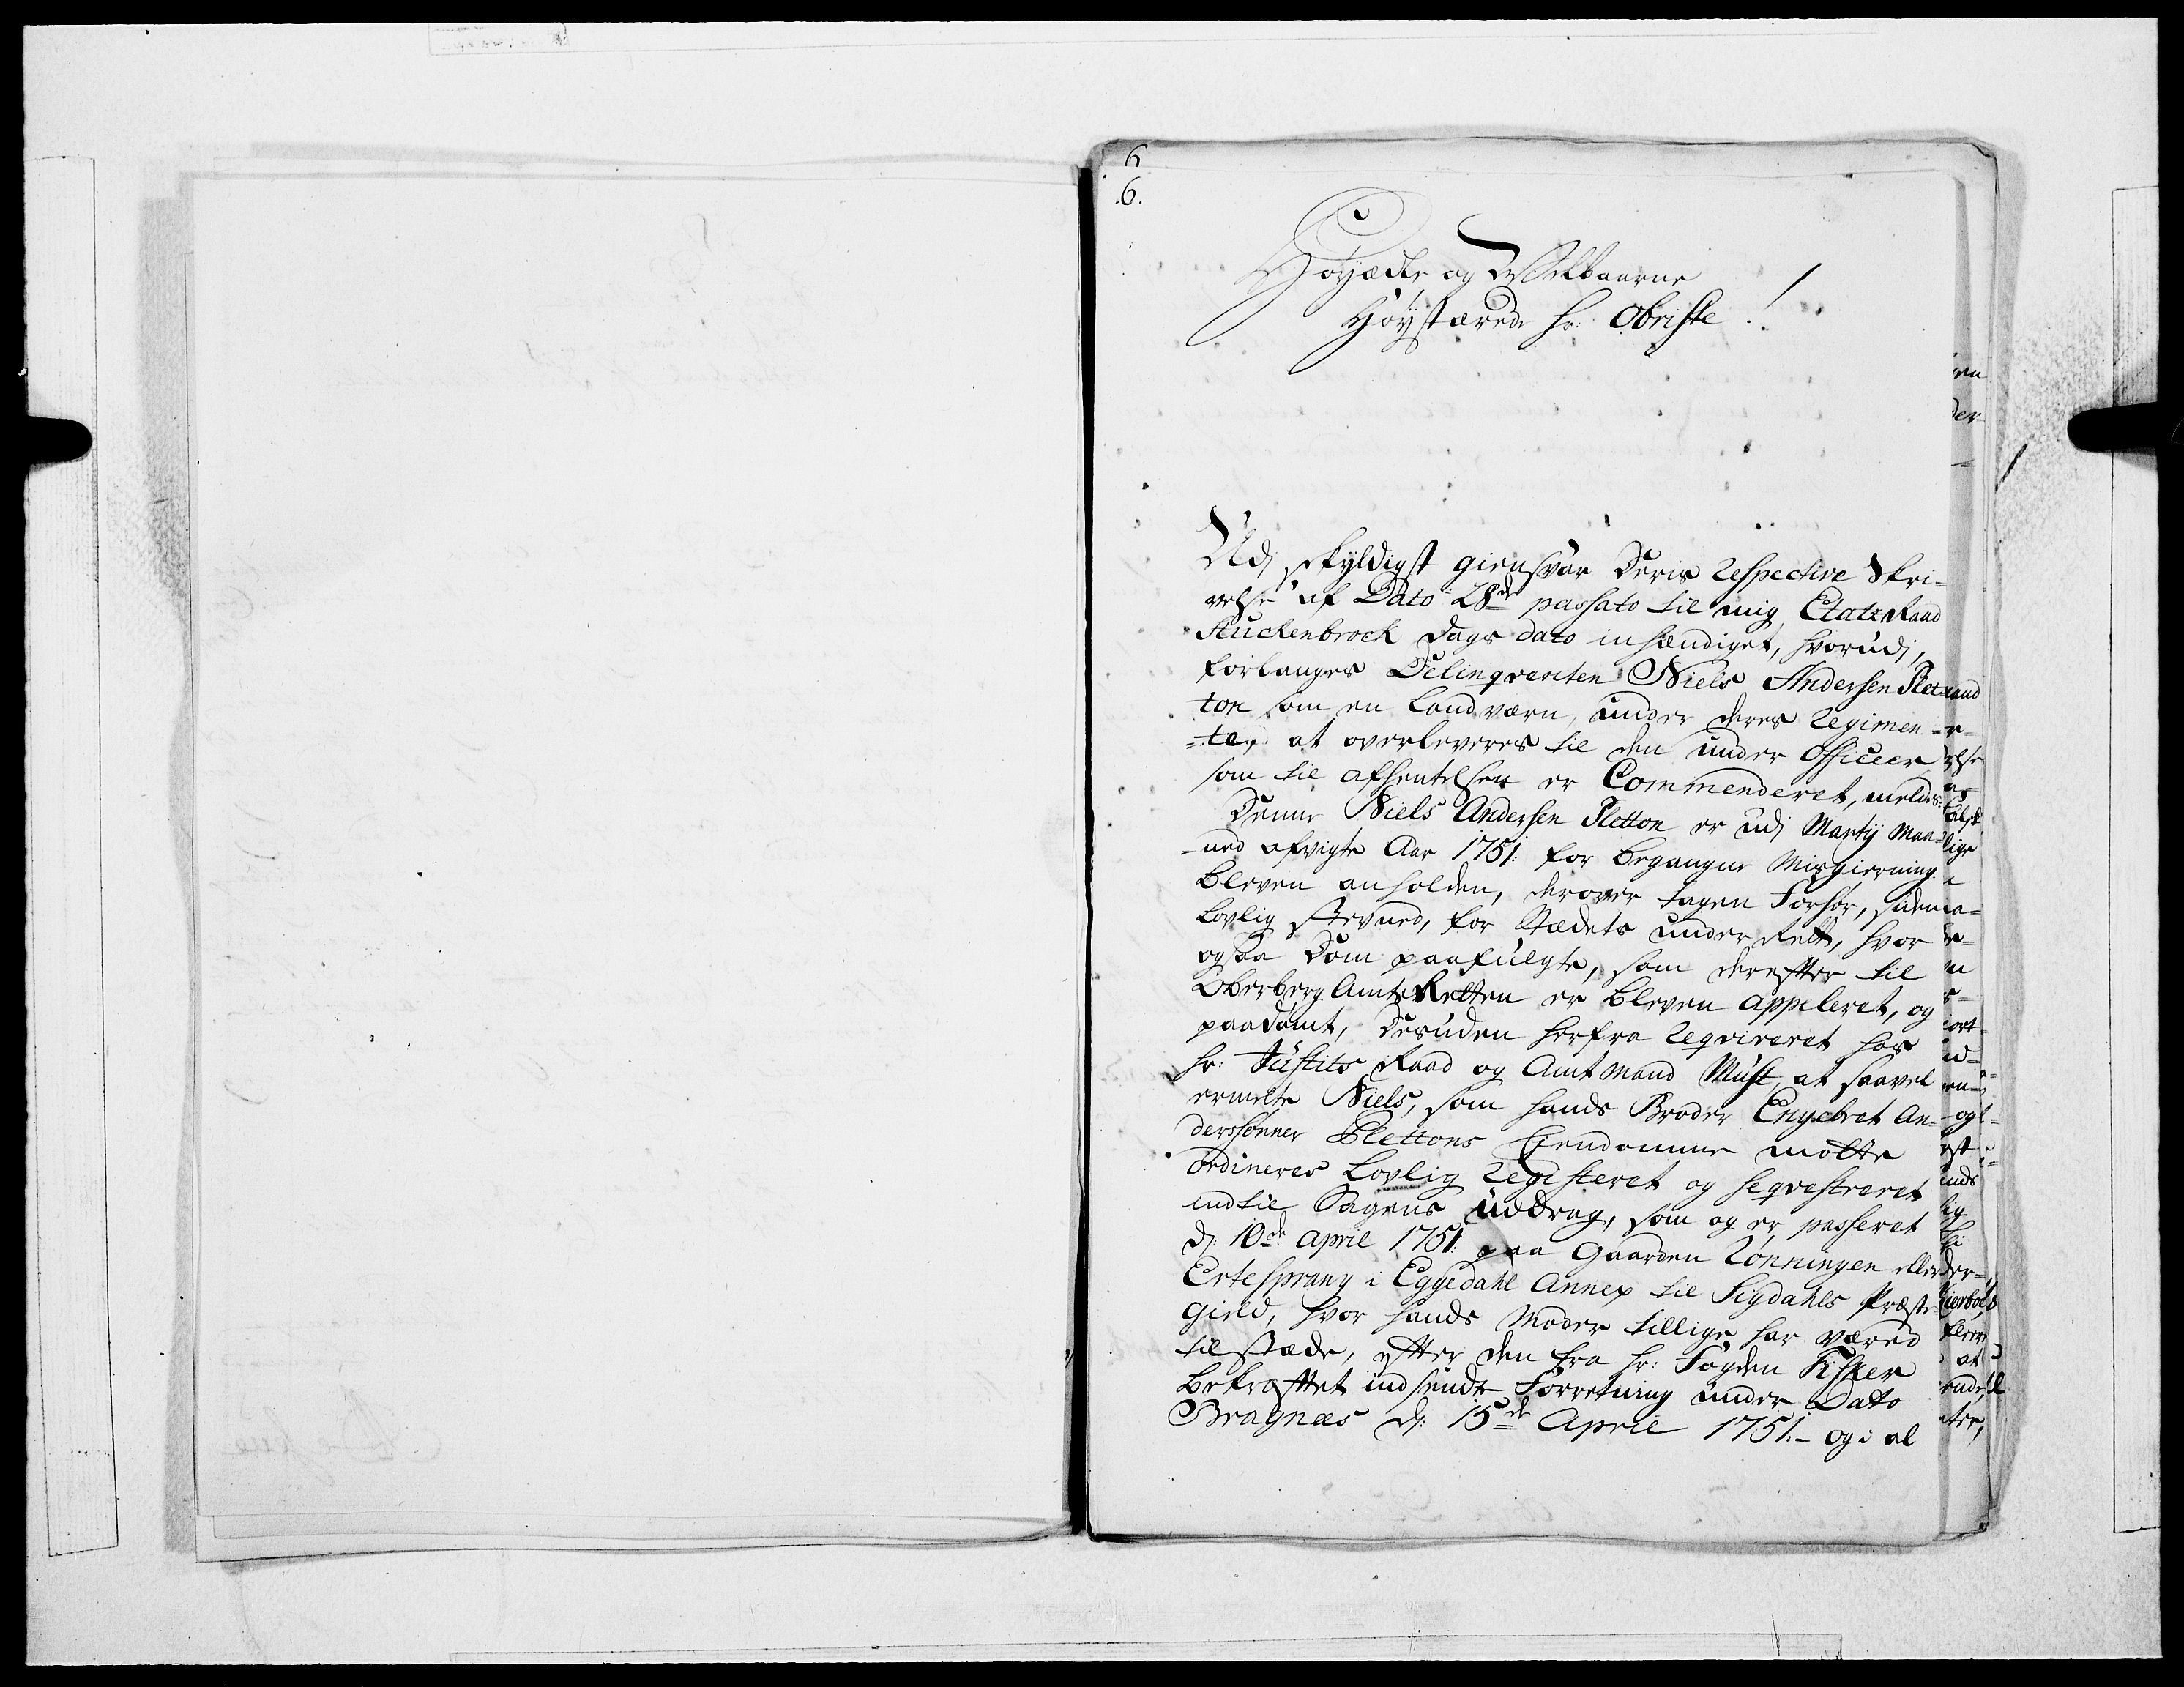 6
6.
Høyædle og Welbaarne
Høystærede Hr: Obriste!
Udj skyldigst giensvar Deris respective Skri-
velse af Dato 28de passato til mig, Etatz Raad
Stuckenbrock Dags dato inhændiget, hvorudj,
forlanges Delinqventen Niels Andersen Plet
ton som en Landværn, under deres Regimen-
=te, at overleveres til den under Officeer
som til afhentelsen er Commenderet, meldes:
Denne Niels Andersen Pletton er udj Martij Maa-
-ned afvigte Aar 1751: for begangne Misgierning
bleven anholden, derover tagen Forhør, siden
lovlig stevned, for Stædets under Rett, hvor
ogsaa Dom paafulgte, som derefter til
OberbergAmtsRetten er bleven appeleret, og
paadømt, Desuden herfra reqvireret hos
Hr: Justits Raad og Amtmand Must, at saavel
ermelte Niels, som hands Broder Engebret An-
derssønner Plettons Eiendomme motte
ordineres Lovlig registeret og seqvestreret
indtil Sagens uddrag, som og er passeret
d: 10de April 1751: paa Gaarden Rønningen eller
Ertesprang i Eggedahl Annex til Sigdahls Præste
gield, hvor hands Moder tillige har været
tilstæde, efter den fra Hr: Fogden Fisker
bekræftet indsendte Forretning under Dato
Bragnæs d: 15de April 1751:- og i al